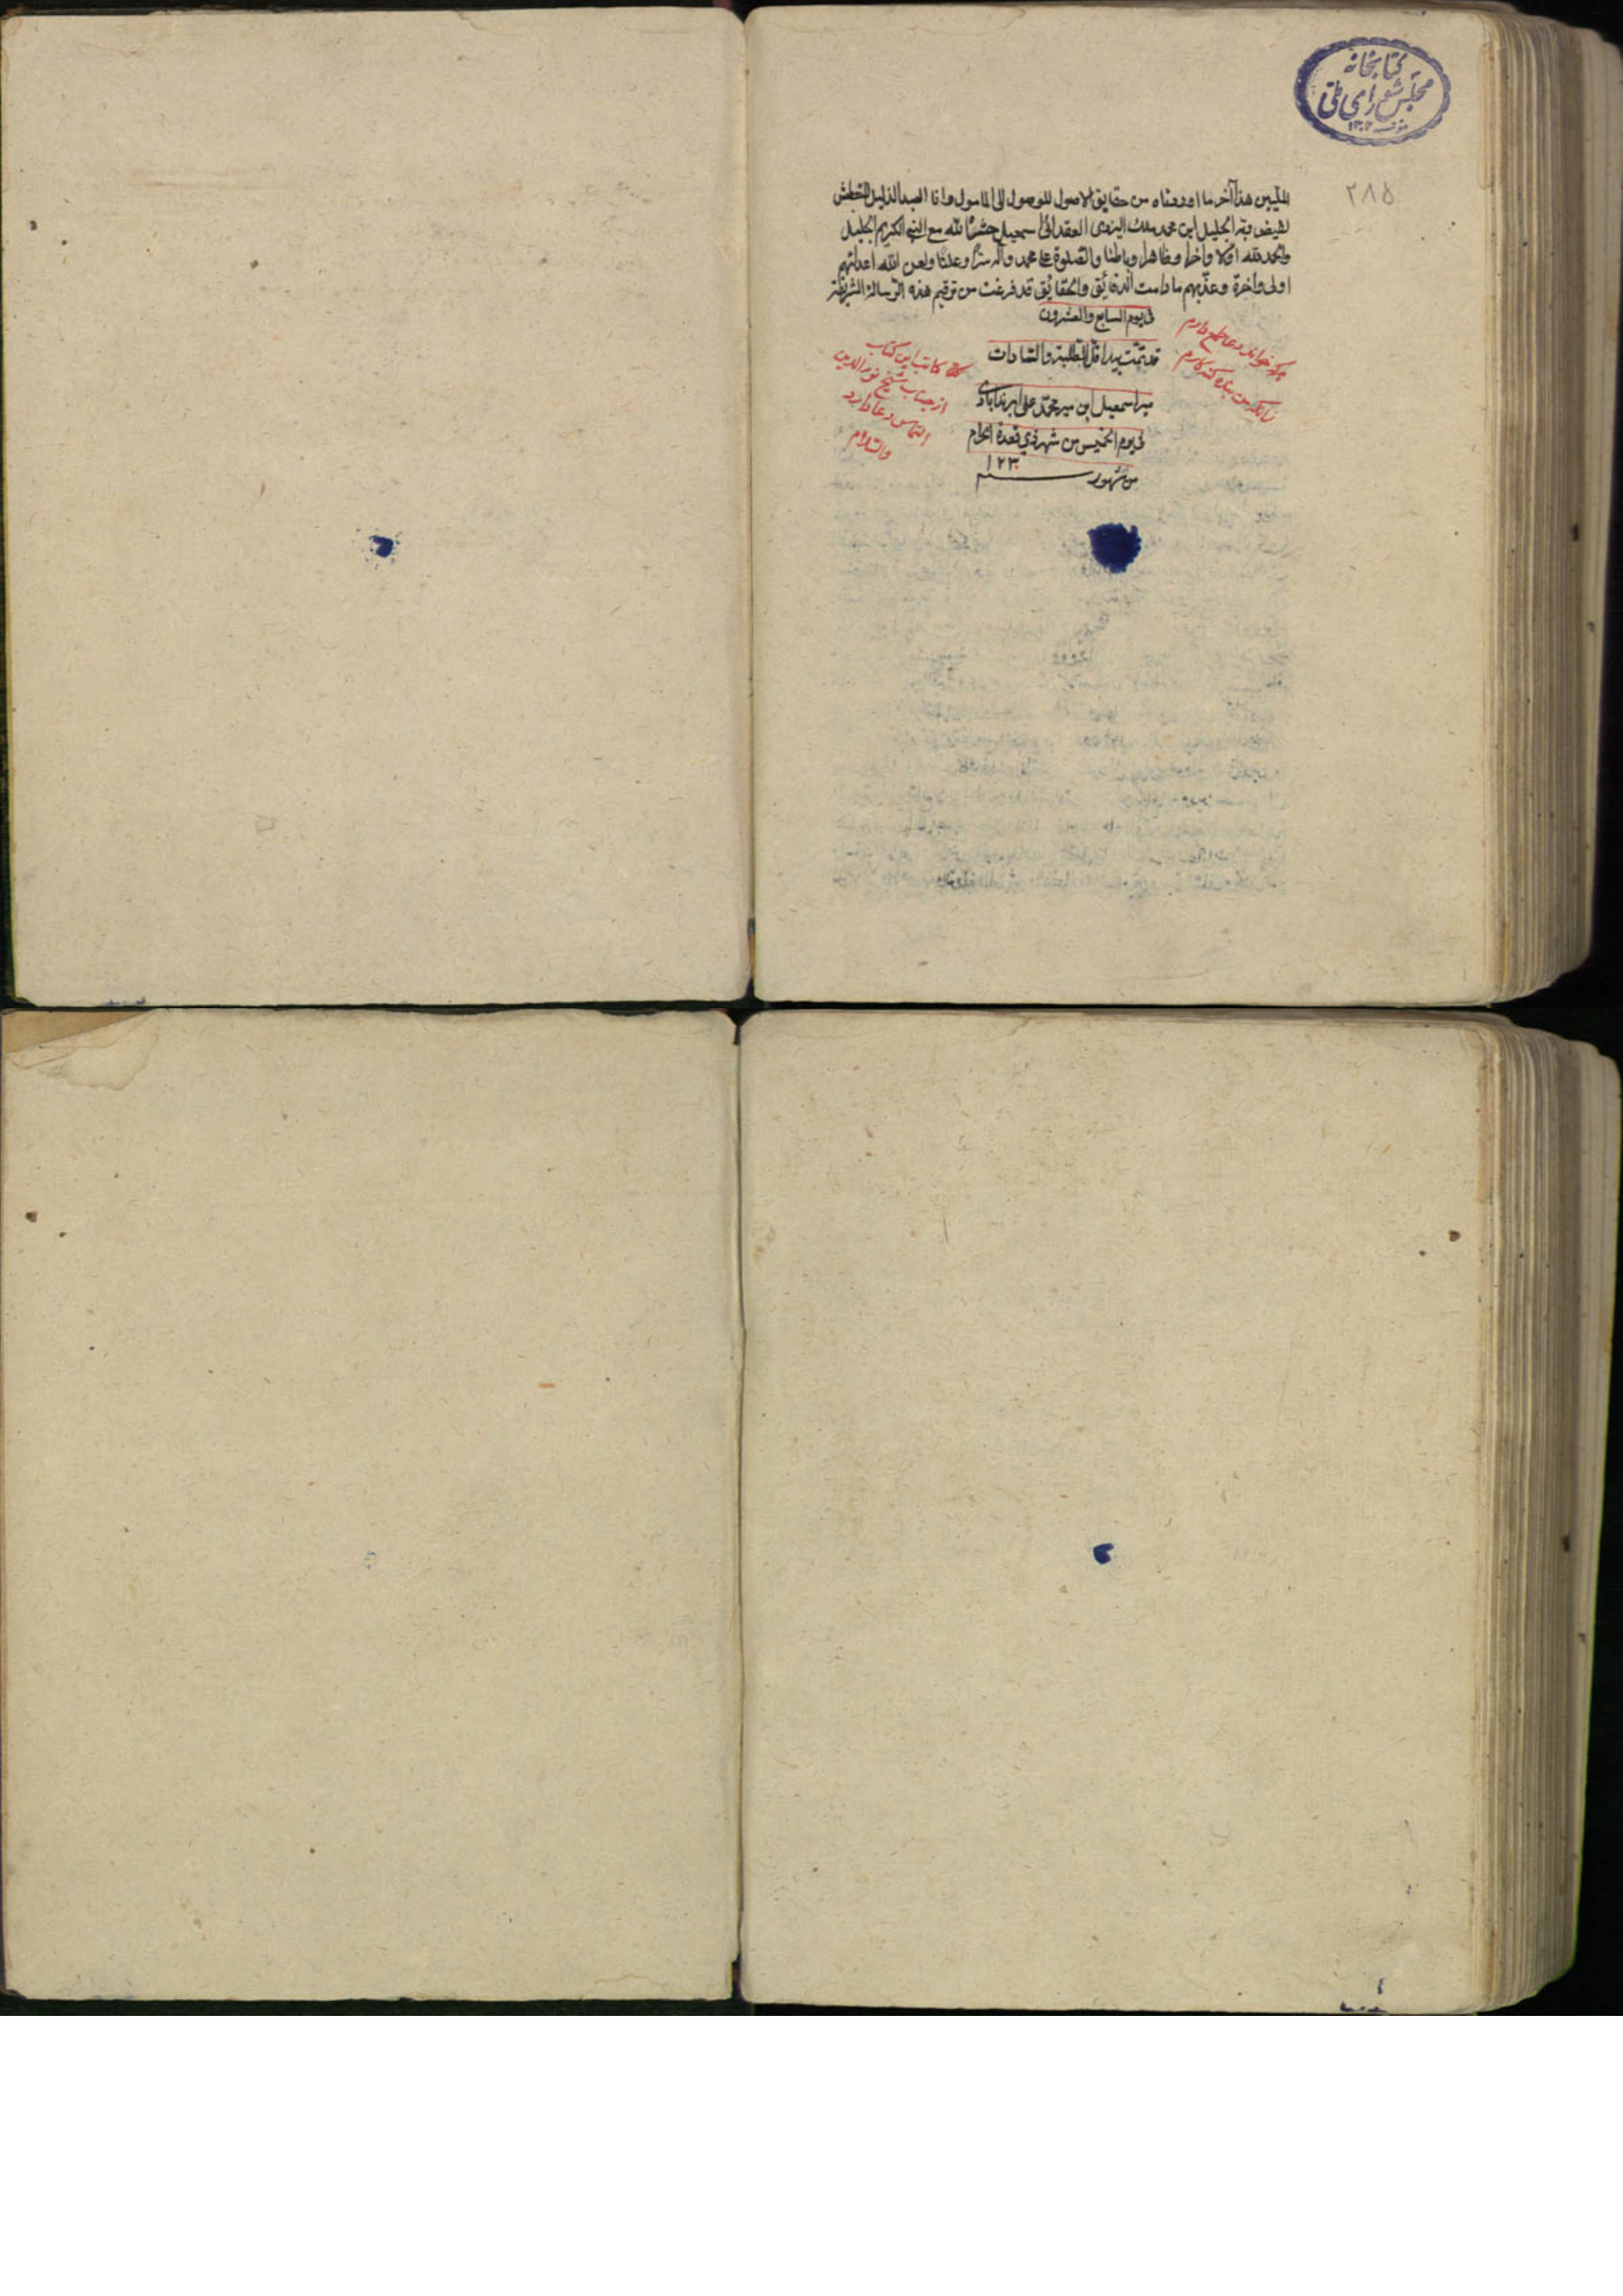 کتابخانه
مجلس شورای ملی
۲۸۵
هذا آخر ما اوردناه من حقایق الاصول للوصول الی المامول وانا العبد الذلیل
لفیض ربه الجلیل ابن محمد ملك الیزدی العقدائی اسمعیل حشرنا الله مع النبی الکریم الجلیل
والحمد لله اولا وآخرا وظاهرا وباطنا والصلوة علی محمد وآله سرا وعلنا ولعن الله اعدائهم
اولی وآخرة وعذبهم ما دامت الدقائق والحقائق قد فرغت من ترقیم هذه الرسالة الشریفة
فی یوم السابع والعشرون
قد تمت بید اقل الطلبة والسادات
میر اسمعیل ابن میر محمد علی
فی یوم الخمیس من شهر ذی قعدة الحرام
من شهور سنه ۱۲۳۰
هر که خواند دعا طمع دارم
زانکه من بنده گنه کارم
کاتب این کتاب
از جناب شیخ نور الدین
التماس دعا دارد
والسلام